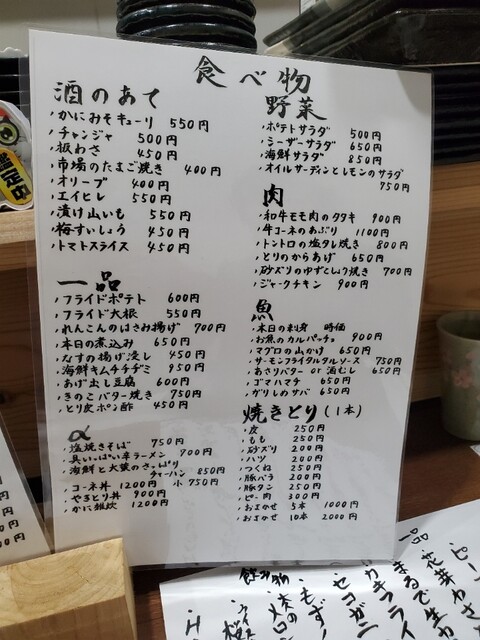 食べ物
酒のあて
・かにみそキューリ 550円
・チャンジャ 500円
・板わさ 450円
・市場のたまご焼き 400円
・オリーブ 400円
・エイヒレ 550円
・漬け山いも 550円
・梅すいしょう 450円
・トマトスライス 450円
一品
・フライドポテト 600円
・フライド大根 550円
・れんこんのはさみ揚げ 700円
・本日の煮込み 650円
・なすの揚げ浸し 450円
・海鮮キムチチヂミ 950円
・あげ出し豆腐 600円
・きのこバター焼き 750円
・とり皮ポン酢 450円
α
・塩焼きそば 750円
・具いっぱい辛ラーメン 900円
・海鮮と大葉のさっぱり
チャーハン 850円
小 750円
・コーネ丼 1200円
・やきとり丼 900円
・かに雑炊 1200円
野菜
・ポテトサラダ 500円
・シーザーサラダ 650円
・海鮮サラダ 850円
・オイルサーディンとレモンのサラダ
750円
肉
・和牛モモ肉のタタキ 900円
・牛コーネのあぶり 1100円
・トントロの塩タレ焼き 800円
・とりのからあげ 650円
・砂ズリのゆずこしょう焼き 700円
・ジャークチキン 900円
魚
・本日の刺身 時価
・お魚のカルパッチョ 900円
・マグロの山かけ 650円
・サーモンフライタルタルソース 750円
・あさりバター or 酒むし 650円
・ゴマハマチ 650円
・ガリしめサバ 650円
焼きとり(1本)
・皮 250円
・もも 250円
・砂ズリ 200円
・ハツ 200円
・つくね 250円
・豚バラ 200円
・豚タン 250円
・ピー肉 300円
・おまかせ 5本 1000円
・おまかせ 10本 2000円
一品
飲み物